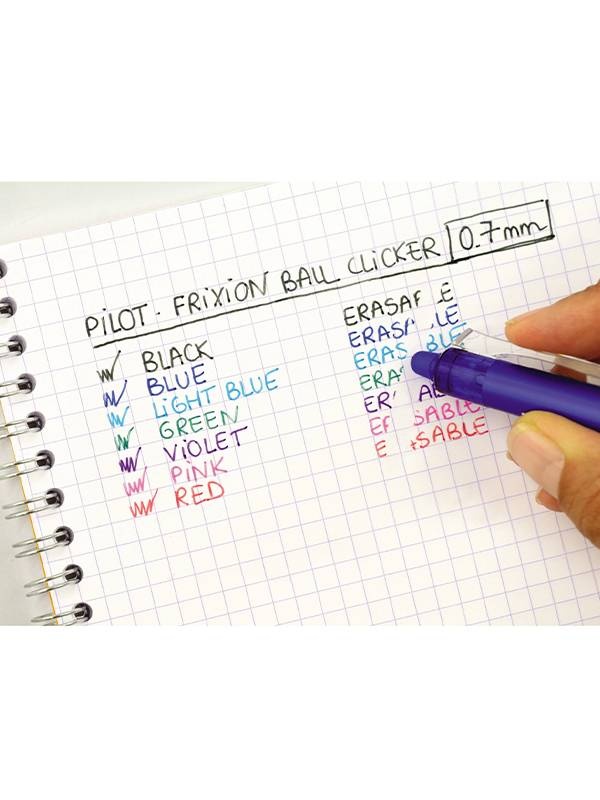 PILOT - FRIXION BALL CLICKER 0.7mm
BLACK
BLUE
LIGHT BLUE
GREEN
VIOLET
PINK
RED
ERAS
ERAS LE
ERAS BLE
ERA
ER
E SABLE
E SABLE